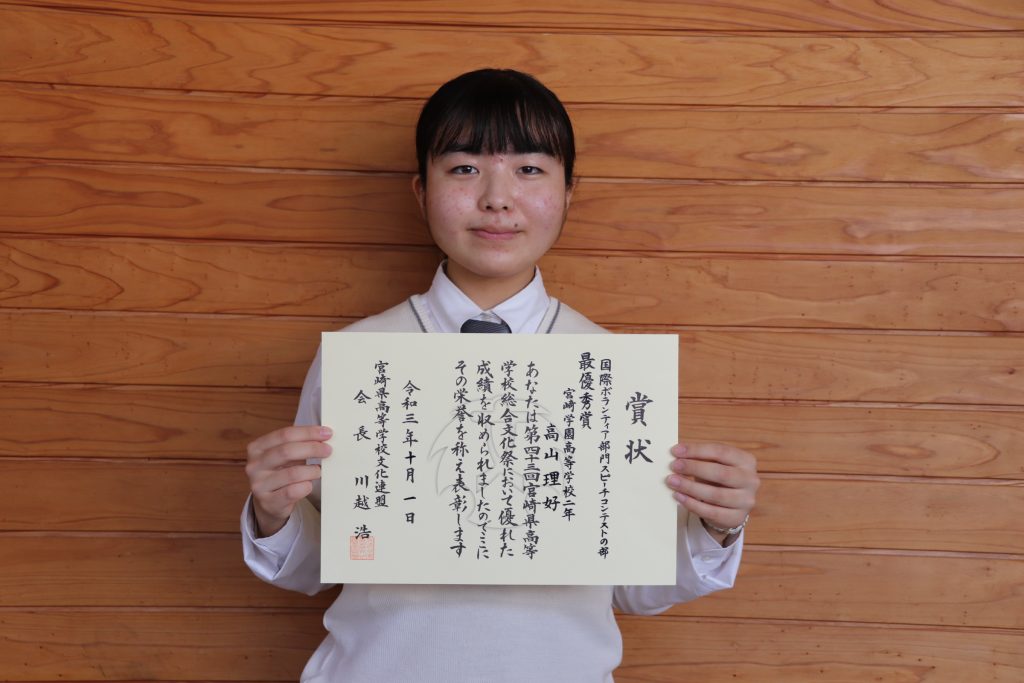 賞状
国際ボランティア部門スピーチコンテストの部
最優秀賞
宮崎学園高等学校二年
高山理好
あなたは第四十三回宮崎県高等
学校総合文化祭において優れた
成績を収められましたのでここに
その栄誉を称え表彰します
令和三年十月一日
宮崎県高等学校文化連盟
会長 川越浩